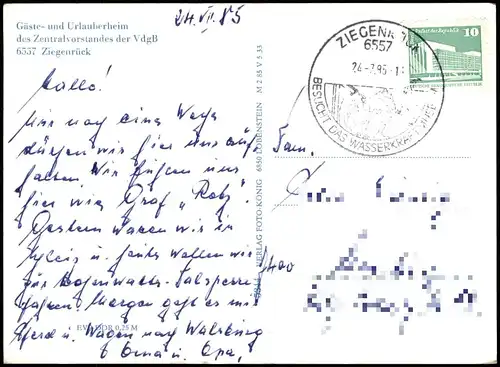 24. VII. 85
Gäste- und Urlauberheim
des Zentralvorstandes der VdgB
6557 Ziegenrück
ZIEGENRÜCK
6557
24.-7.85-1
BESUCHT DAS WASSERKRAFTMUSEUM
10
Hallo!
Nur noch eine Woche
dürfen wir hier uns auf-
halten. Wir fühlen uns
hier wie Graf "Rotz".
Gestern waren wir in
Schleiz u. heute wollen wir
zur Talsperre
fahren. Morgen geht es mit
Pferd u. Wagen nach Walsburg
Oma u. Opa.
Fam.
EVP DDR 0,25 M
VERLAG FOTO-KÖNIG 6850 LOBENSTEIN M 2 85 V 5 33